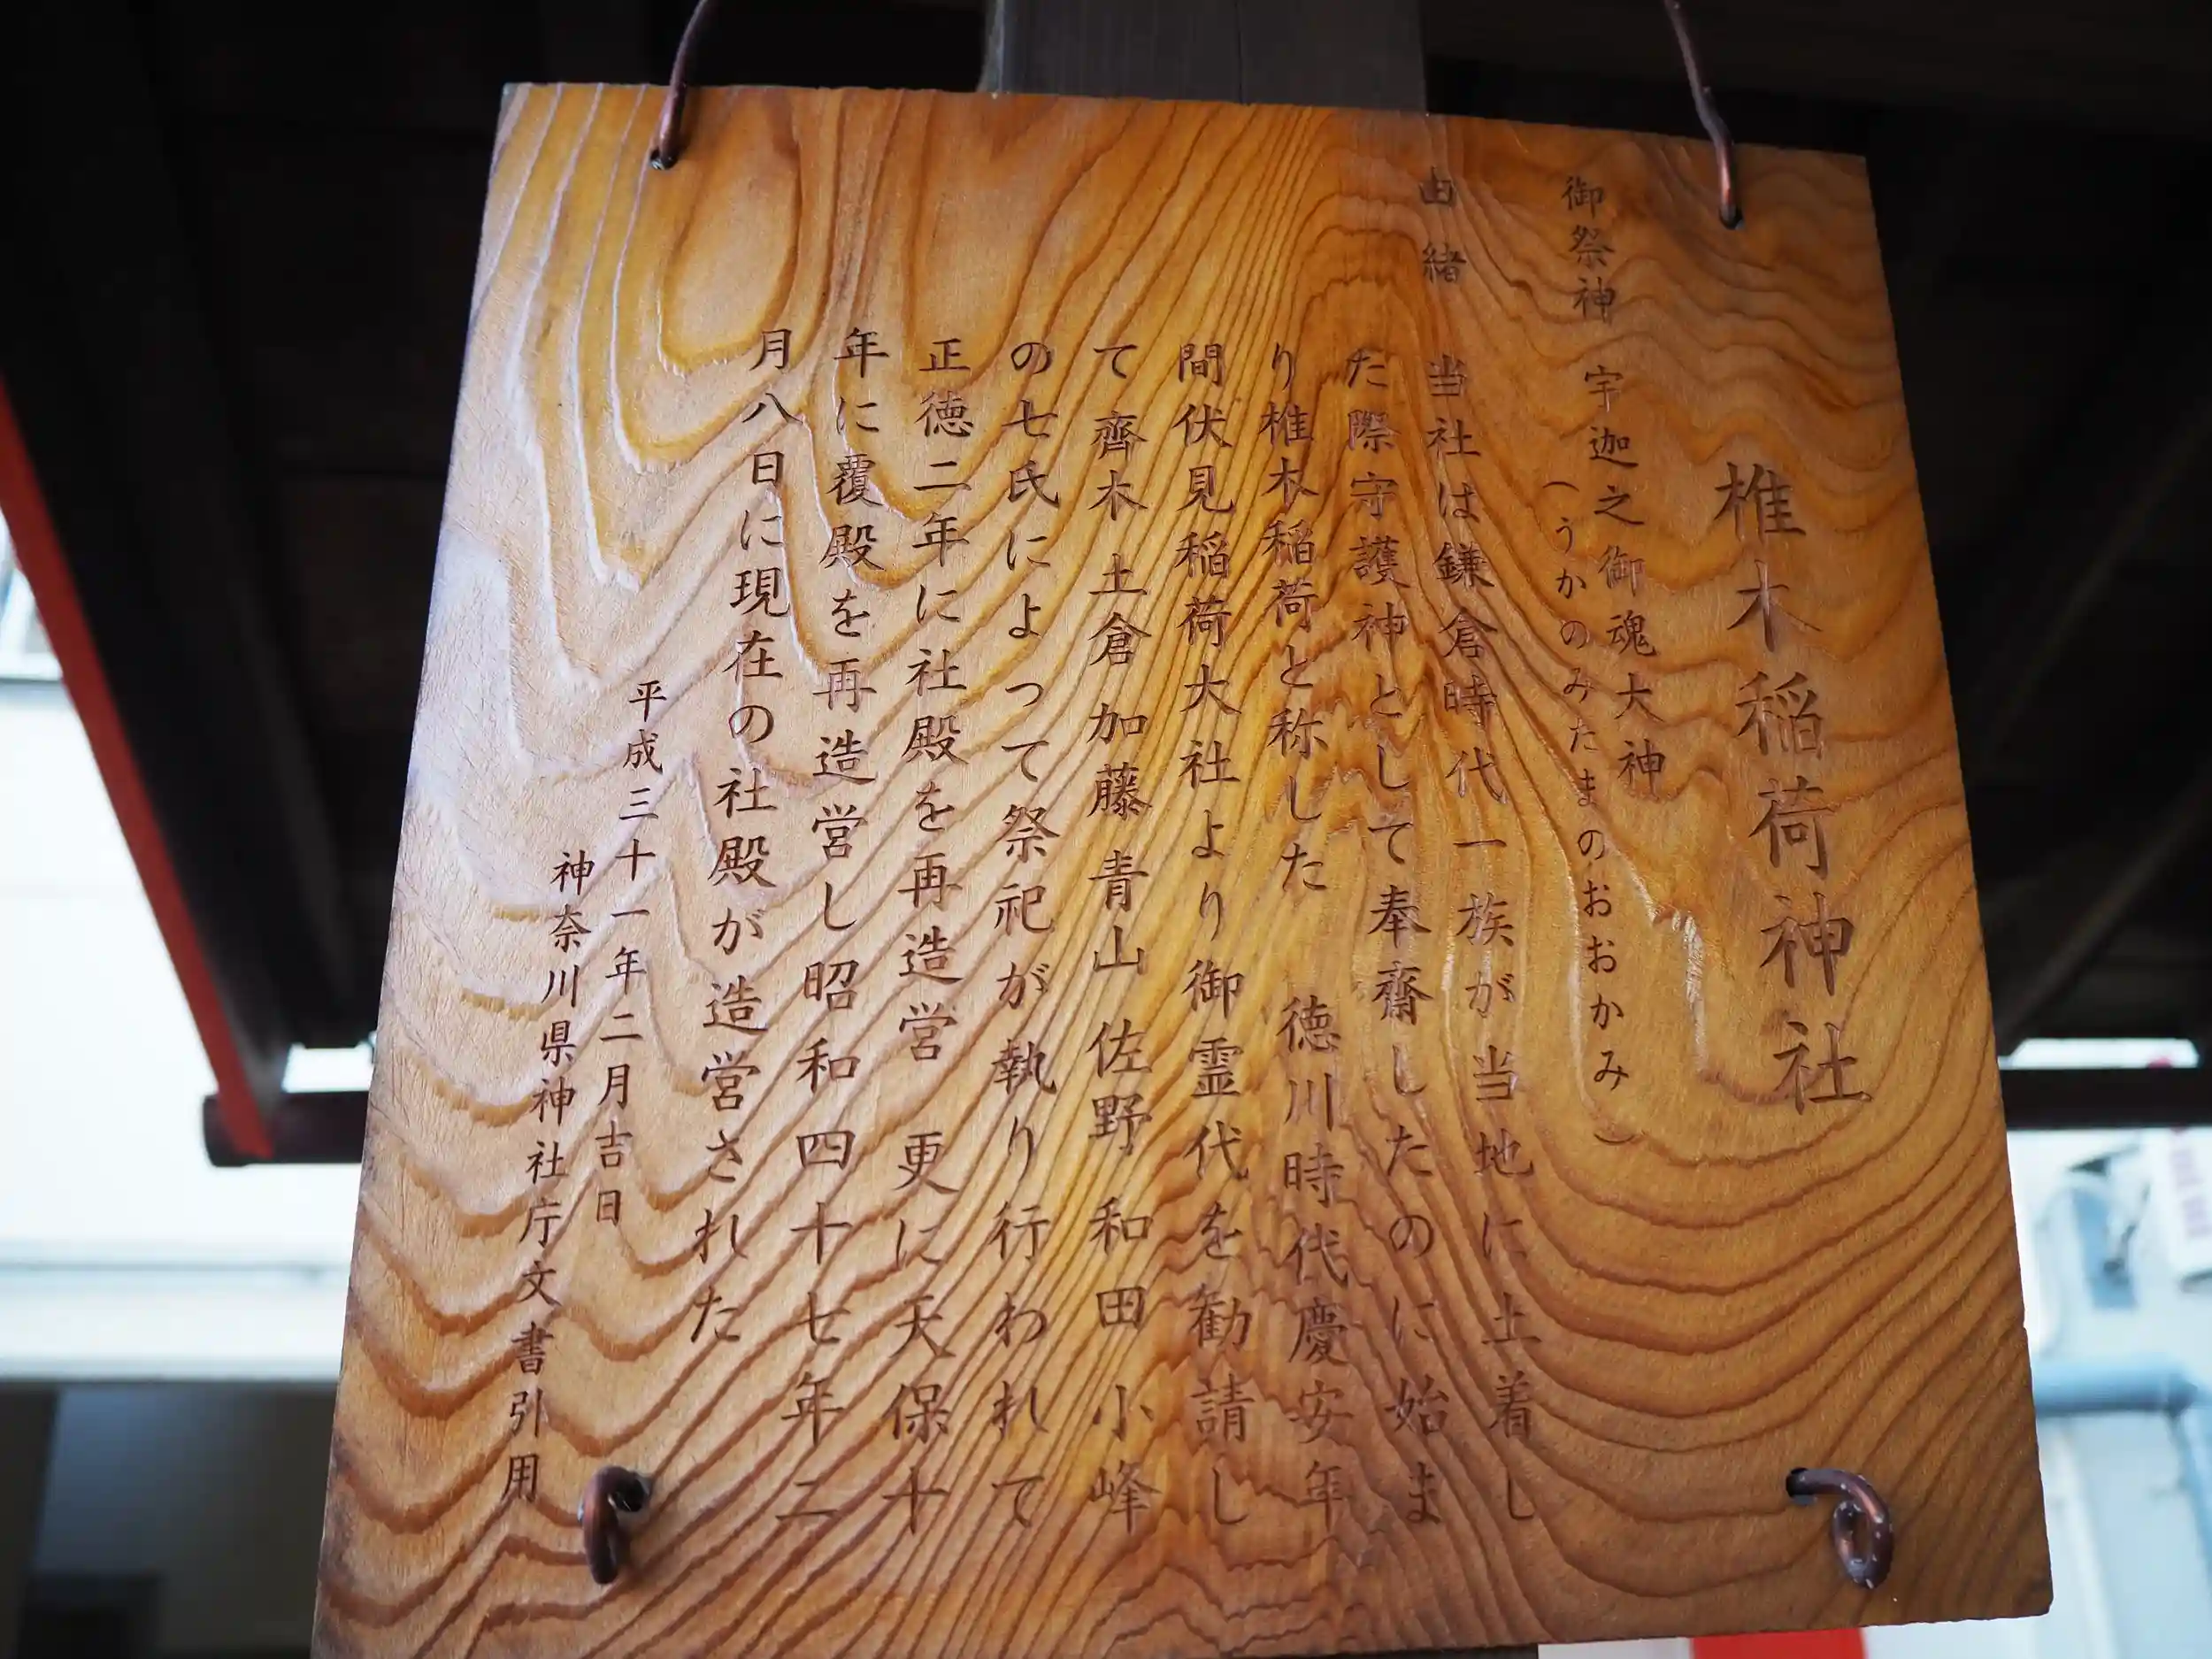 椎木稲荷神社
御祭神 宇迦之御魂大神
(うかのみたまのおおかみ)
由緒
当社は鎌倉時代一族が当地に土着し
た際守護神として奉齋したのに始ま
り椎木稲荷と称した 徳川時代慶安年
間伏見稲荷大社より御霊代を勧請し
て齊木 土倉 加藤 青山 佐野 和田 小峰
の七氏によって祭祀が執り行われて
正徳二年に社殿を再造営 更に天保十
年に覆殿を再造営し昭和四十七年二
月八日に現在の社殿が造営された
平成三十一年二月吉日
神奈川県神社庁文書引用